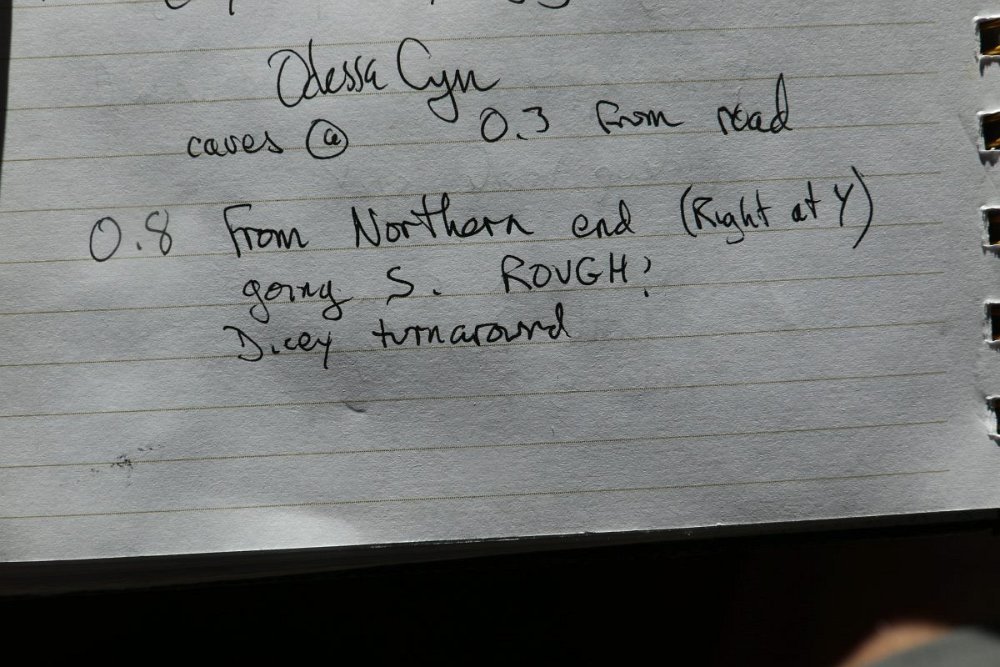 Odessa Cyn
caves @ 0.3 from road
0.8 From Northern end (Right at Y)
going S. ROUGH?
Dicey turnaround